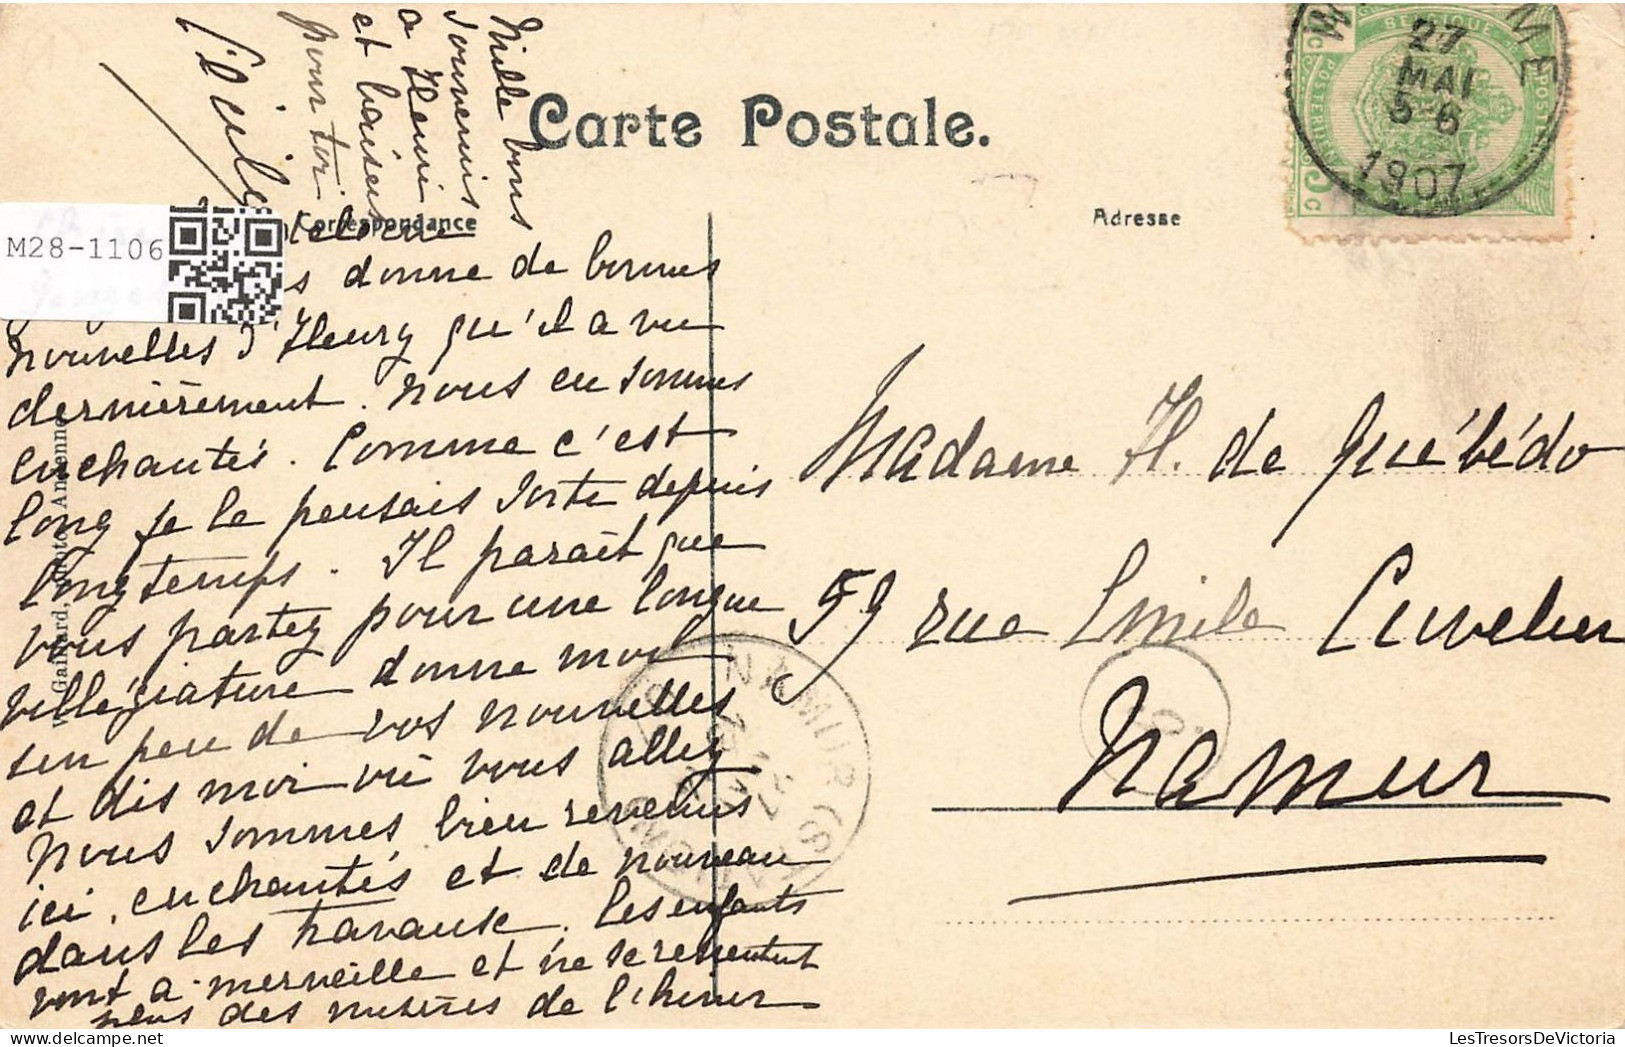 Carte Postale.
Correspondance
Adresse
M28-1106
27
MAI
5-6
1907
BELGIQUE
NAMUR (S
Mille bons
souvenirs
a Henri
et baisers
pour toi
donne de bonnes
nouvelles d'Henry qu'il a vu
dernièrement. Nous en sommes
enchantés. Comme c'est
long je le pensais sorti depuis
longtemps. Il parait que
vous partez pour une longue
villégiature donne moi
un peu de vos nouvelles
et dis moi où vous allez
Nous sommes bien revenus
ici, enchantés et de nouveau
dans les travaux. Les enfants
vont a merveille et ne se ressentent
plus des misères de l'hiver
Madame H. de Québédo
59 rue Emile Cuvelier
Namur
LesTresorsDeVictoria